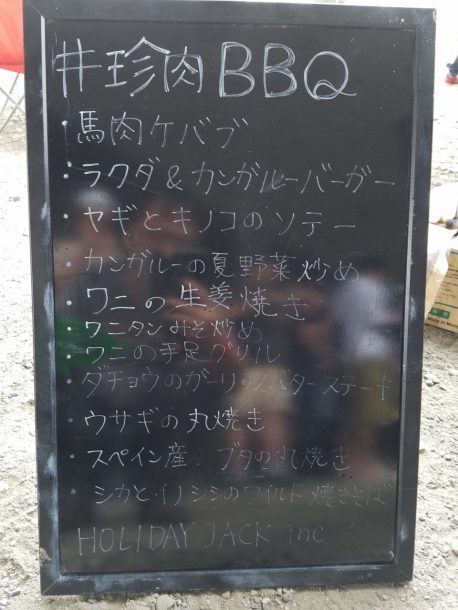 #珍肉BBQ
・馬肉ケバブ
・ラクダ&カンガルーバーガー
・ヤギとキノコのソテー
・カンガルーの夏野菜炒め
・ワニの生姜焼き
・ワニタンみそ炒め
・ワニの手足グリル
・ダチョウのガーリックバターステーキ
・ウサギの丸焼き
・スペイン産 ブタの丸焼き
・シカとイノシシのワイルド焼きそば
HOLIDAY JACK inc